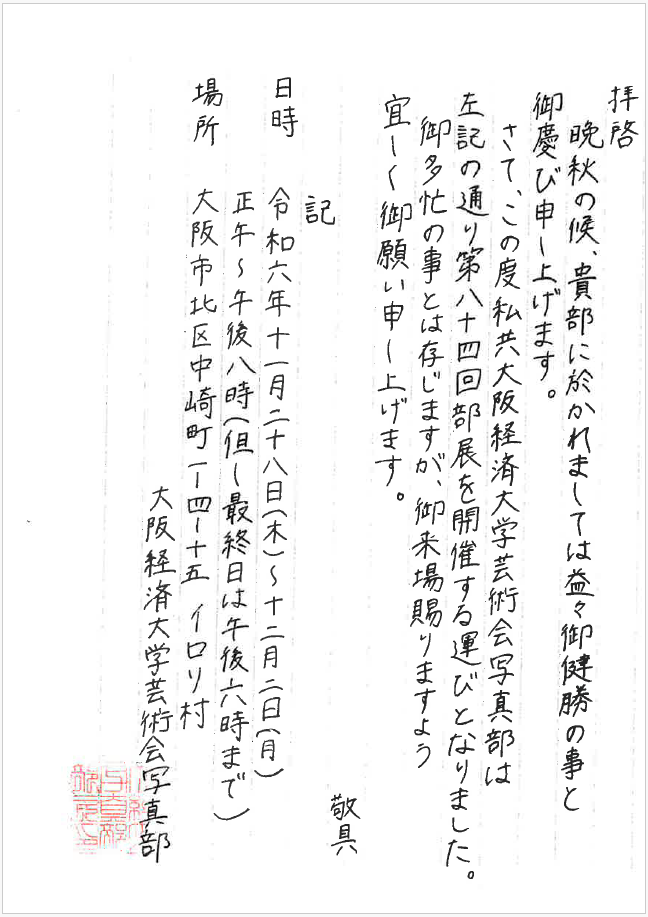 拝啓
晩秋の候、貴部に於かれましては益々御健勝の事と
御慶び申し上げます。
さて、この度私共大阪経済大学芸術会写真部は
左記の通り第八十四回部展を開催する運びとなりました。
御多忙の事とは存じますが、御来場賜りますよう
宜しく御願い申し上げます。
敬具
記
日時 令和六年十一月二十八日(木)~十二月二日(月)
正午~午後八時(但し最終日は午後六時まで)
場所 大阪市北区中崎町一ー四ー十五 イロリ村
大阪経済大学芸術会写真部